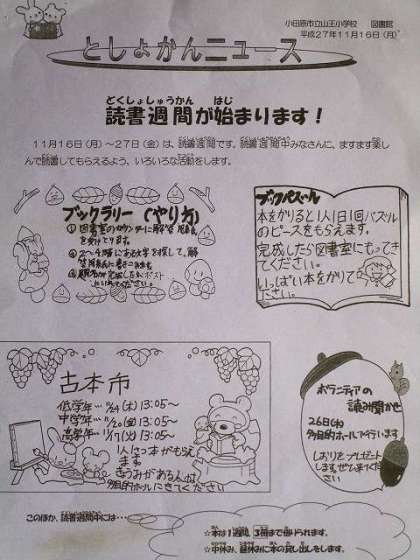 小田原市立山王小学校 図書館
平成27年11月16日(月)
としょかんニュース
どくしょしゅうかん はじ
読書週間が始まります!
11月16日(月)～27日(金)は、読書週間です。読書週間中みなさんに、ますます楽し
んで読書してもらえるよう、いろいろな活動をします。
ブックラリー(やり方)
①図書室のカウンターに解答用紙
を取りに行
②2～4階にある文字を探して、解
ブックパズル
本をかりると1人1日1回パズル
のピースをもらえます。
完成したら図書室にもってき
てください。
いっぱい本をかりてく
ださい。
古本市
低学年…11/19(木)13:05～
中学年…11/20(金)13:05～
高学年…11/17(火)13:05～
1人1さつ本がもらえ
ます
きょうみがある人は
多目的ホールにきてください
ボランティアの
読み聞かせ
26日(木)
多目的ホールで行います
しおりをプレゼント
しますぜひ来てくださ
い
このほか、読書週間中には…
☆本は1週間、3冊まで借りられます。
☆中休み、昼休みに本の貸し出しをします。